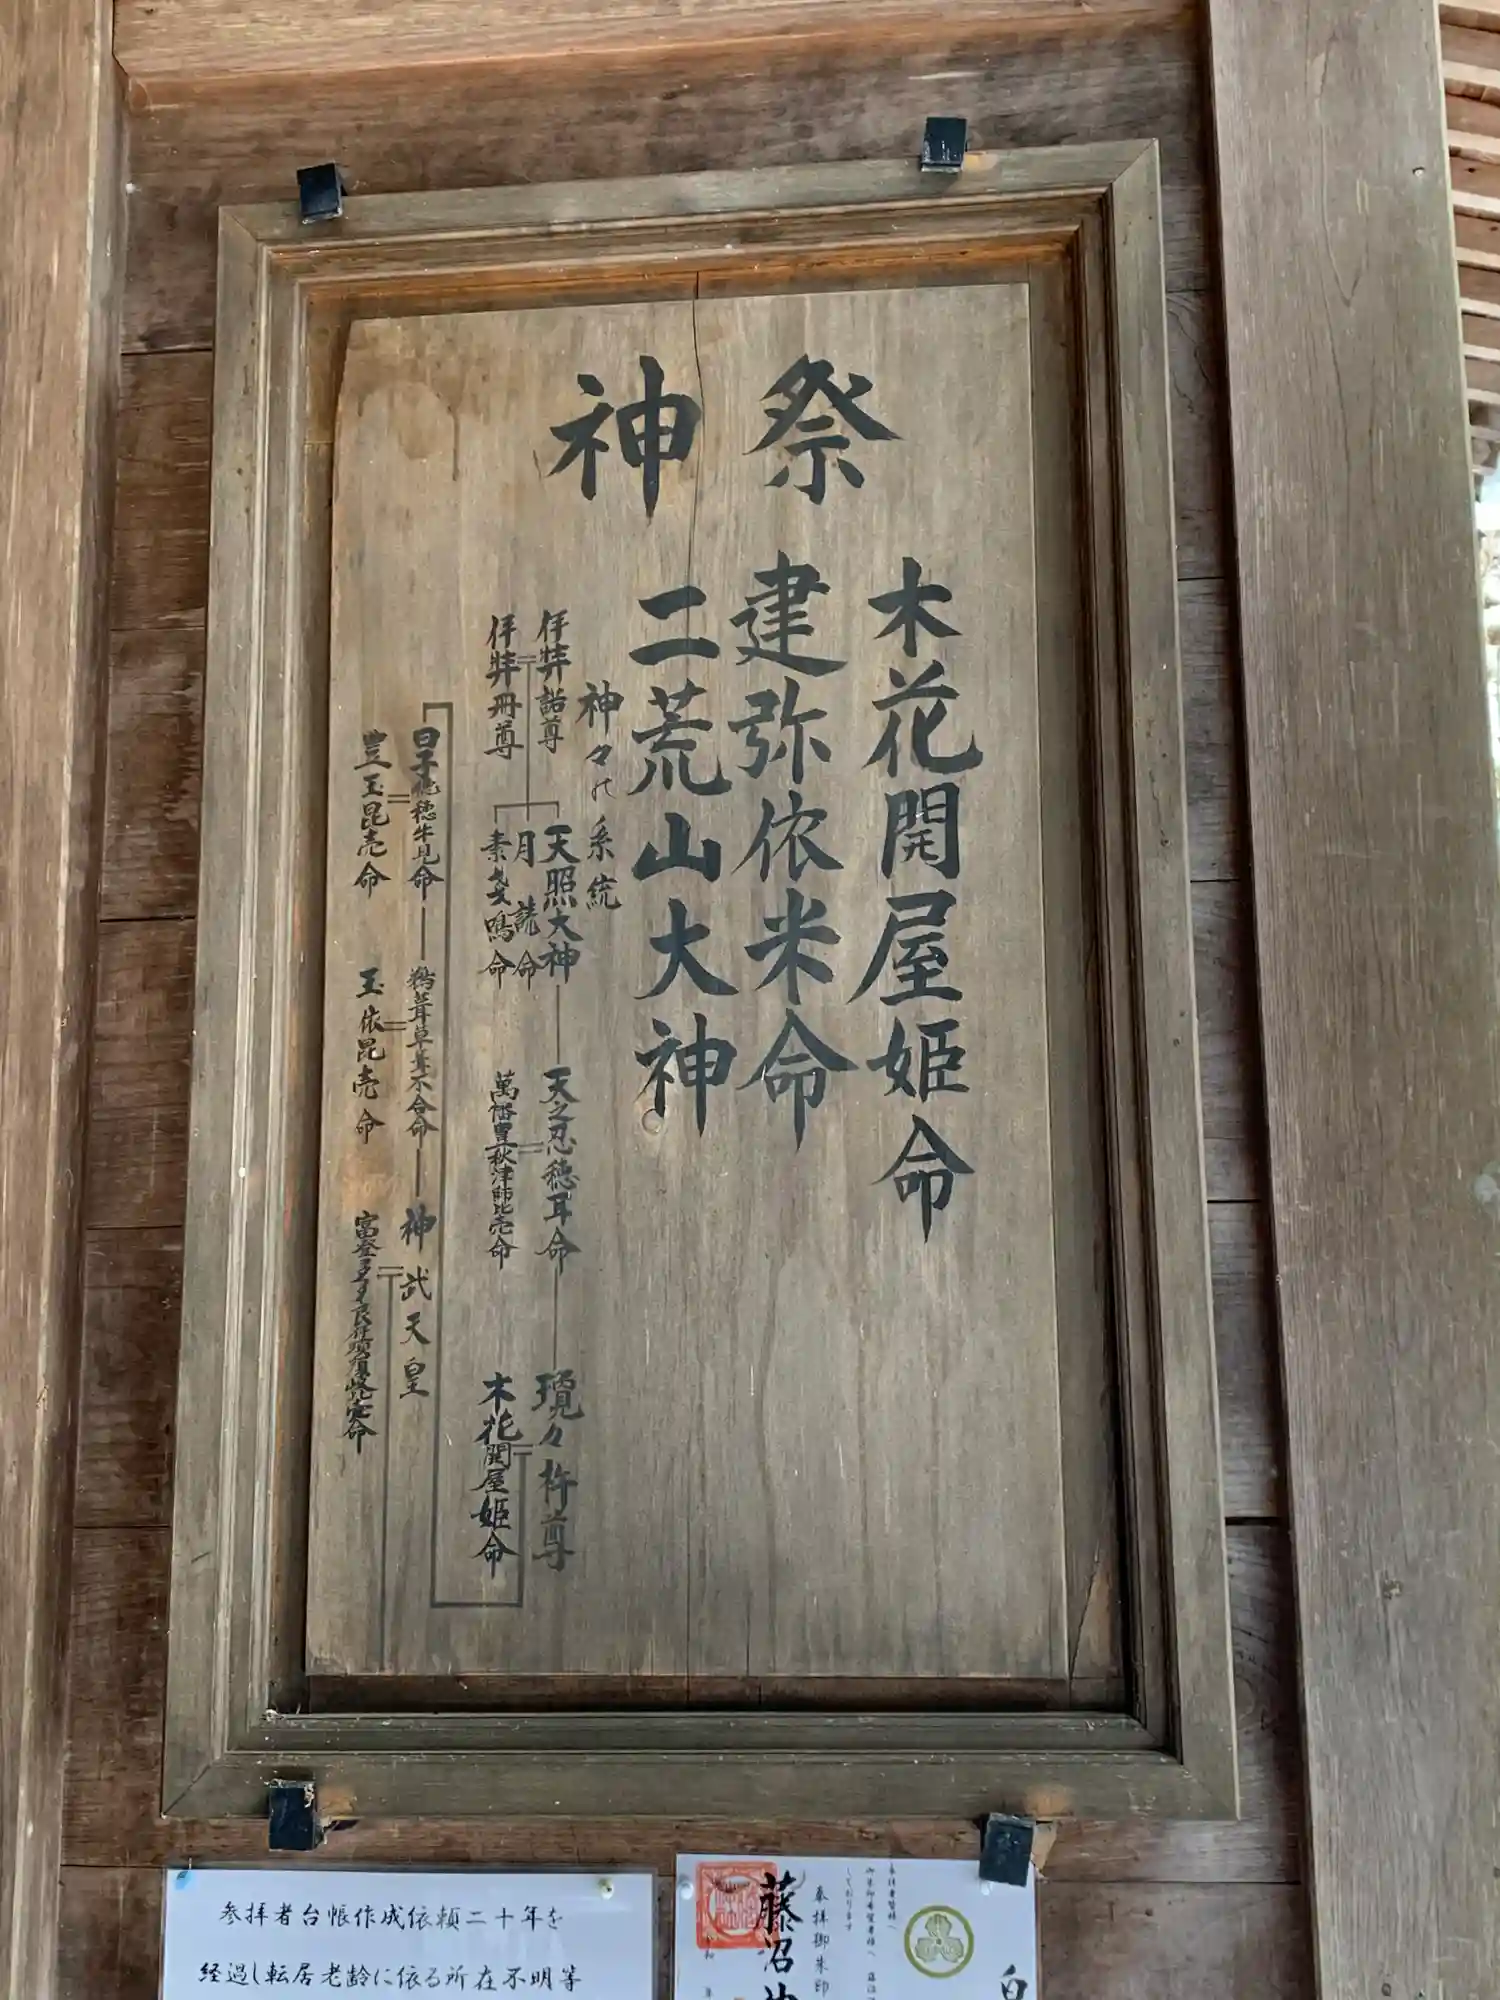 祭神
木花開屋姫命
建弥依米命
二荒山大神
神々の系統
伊弉諾尊
伊弉冊尊
天照大神
月読命
素戔嗚命
天之忍穂耳命
萬幡豊秋津師比売命
瓊々杵尊
木花開屋姫命
豊玉昆売命
鵜葺草葺不合命
玉依昆売命
神武天皇
参拝者台帳作成依頼二十年を
経過し転居老齢に依る所在不明等
藤沼
奉拝御朱印